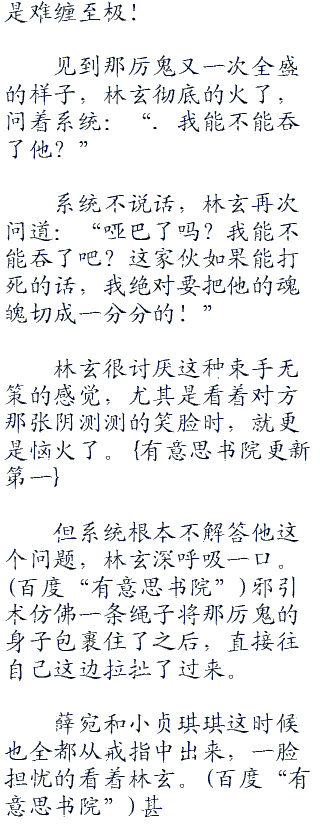 是难缠至极！
见到那厉鬼又一次全盛
的样子，林玄彻底的火了，
问着系统：“．我能不能吞
了他？”
系统不说话，林玄再次
问道：“哑巴了吗？我能不
能吞了吧？这家伙如果能打
死的话，我绝对要把他的魂
魄切成一分分的！”
林玄很讨厌这种束手无
策的感觉，尤其是看着对方
那张阴测测的笑脸时，就更
是恼火了。{有意思书院更新
第一}
但系统根本不解答他这
个问题，林玄深呼吸一口。
(百度“有意思书院”)邪引
术仿佛一条绳子将那厉鬼的
身子包裹住了之后，直接往
自己这边拉扯了过来。
薛宛和小贞琪琪这时候
也全都从戒指中出来，一脸
担忧的看着林玄。(百度“有
意思书院”)甚